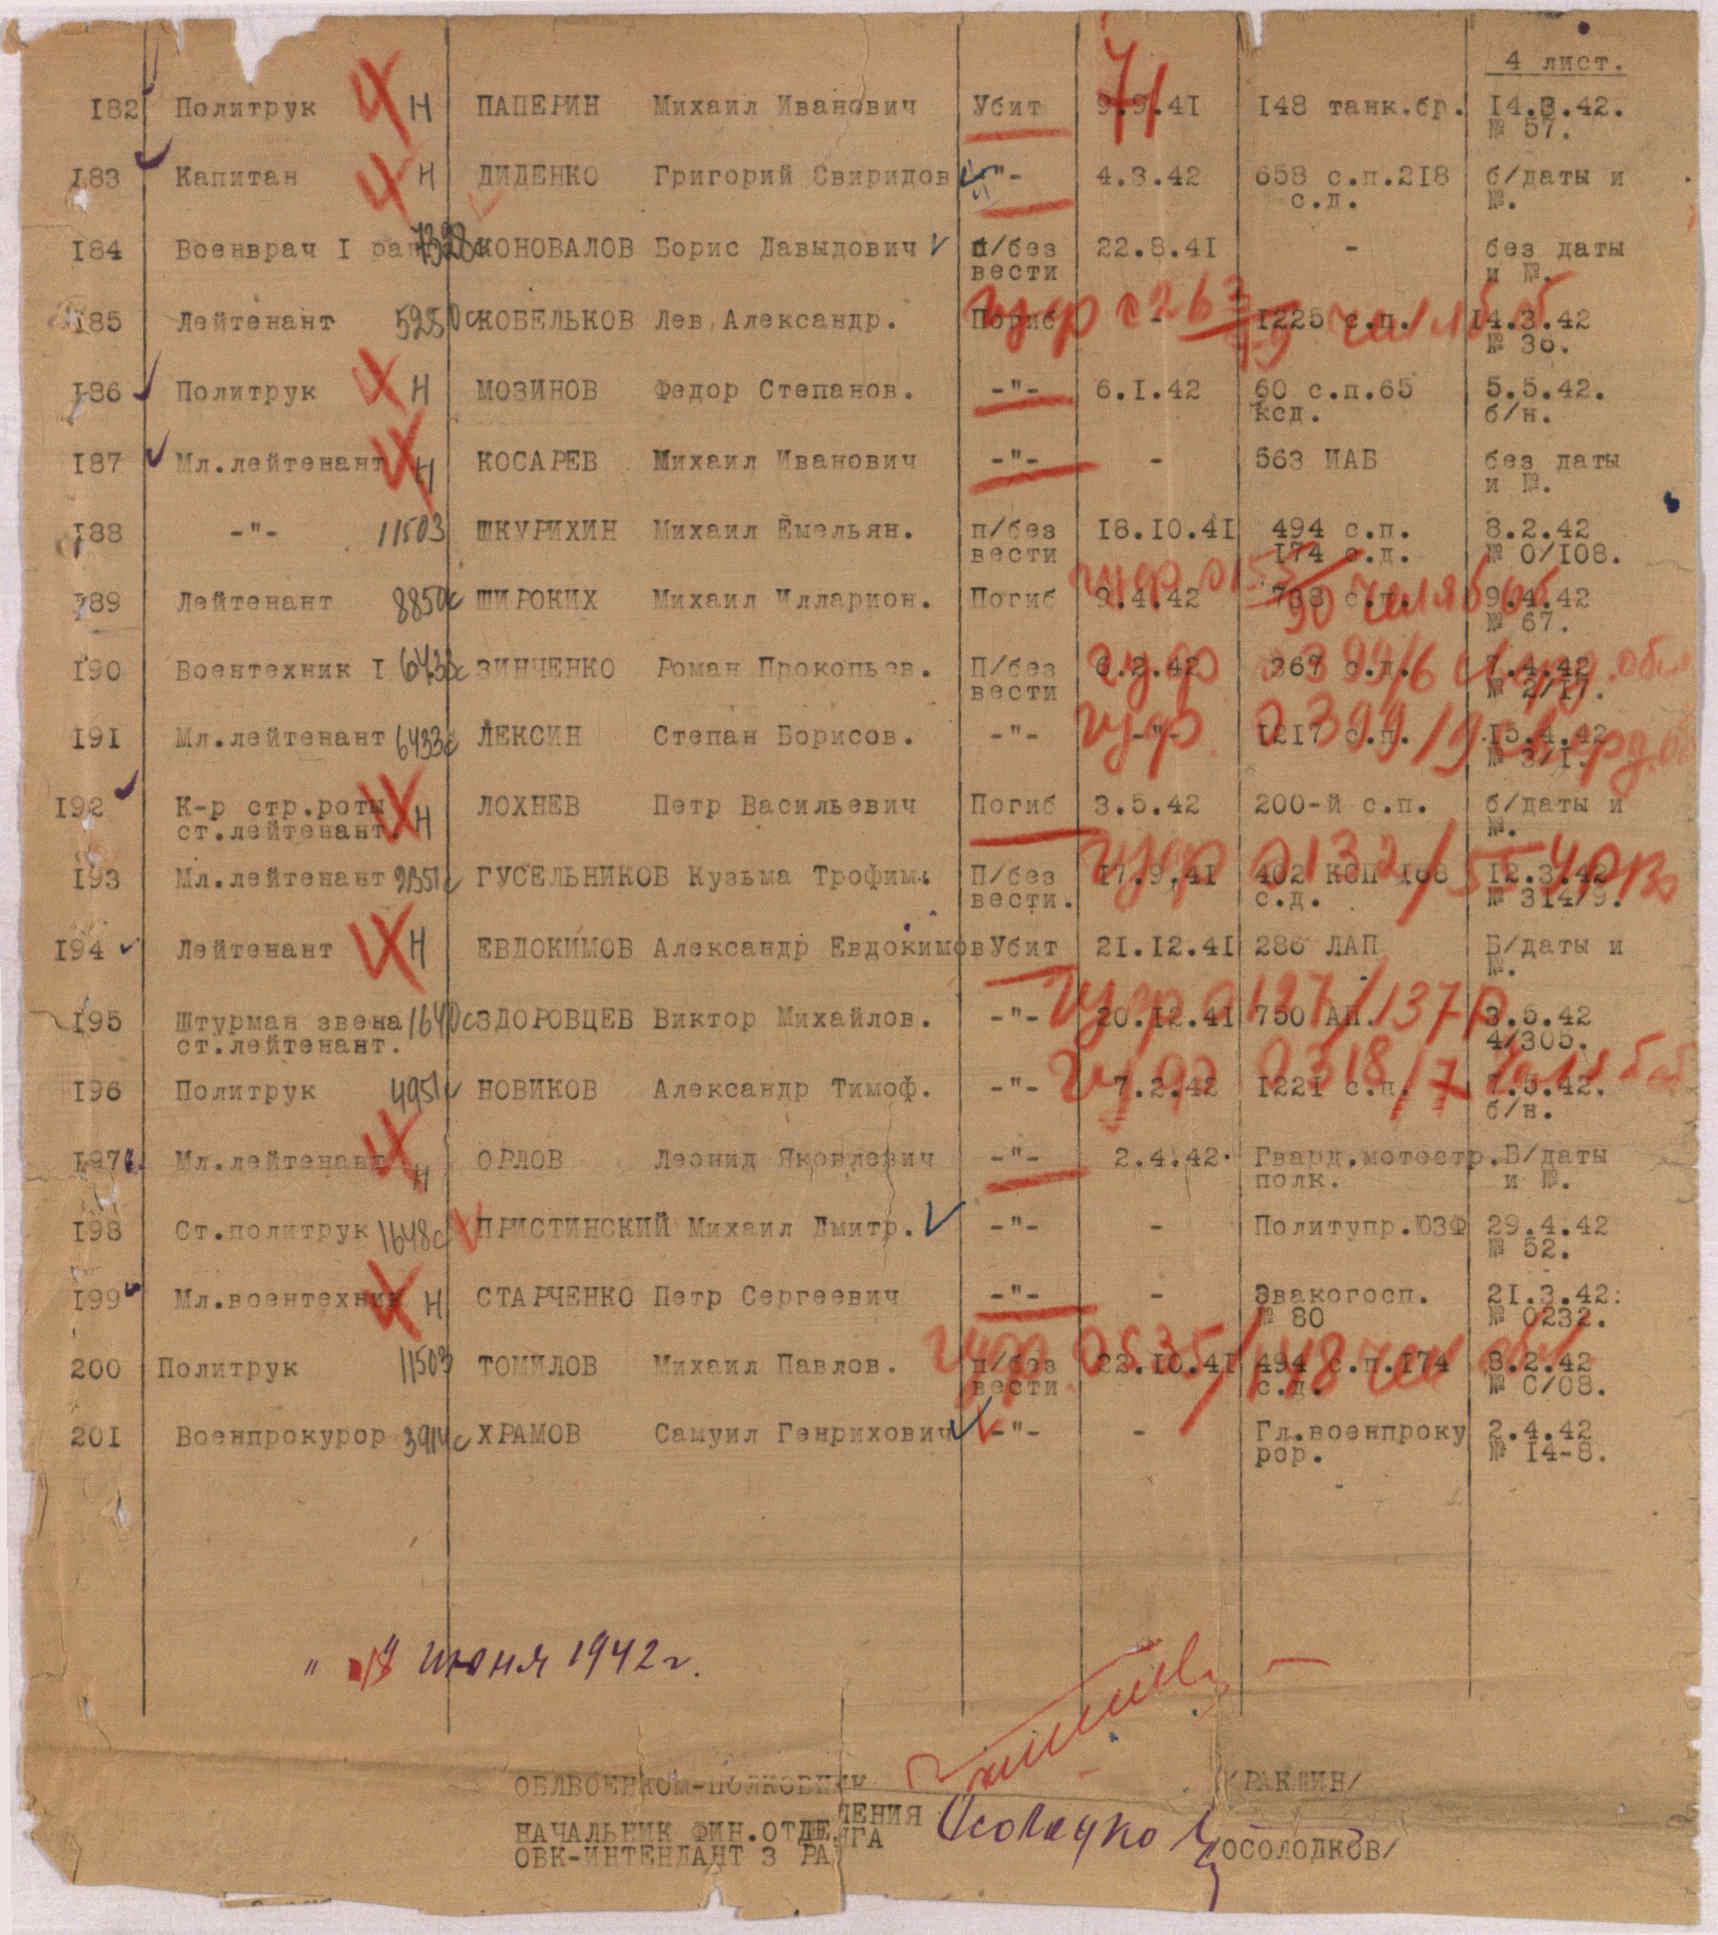 4 лист.
182 Политрук Ч Н ПАПЕРИН Михаил Иванович Убит 9.9.41 148 танк.бр. 14.3.42.
№ 57.
183 Капитан Ч Н ДИДЕНКО Григорий Свиридов -"- 4.3.42 658 с.п.218 б/даты и
с.д. №.
184 Военврач I КОНОВАЛОВ Борис Давыдович п/без 22.8.41 - без даты
вести и №.
185 Лейтенант КОБЕЛЬКОВ Лев Александр. Погиб - 1225 с.п. 14.3.42
№ 36.
186 Политрук Н МОЗИНОВ Федор Степанов. -"- 6.1.42 60 с.п.65 5.5.42.
ксд. б/н.
187 Мл.лейтенант Н КОСАРЕВ Михаил Иванович -"- - 563 ИАБ без даты
и №.
188 -"- 11503 ШКУРИХИН Михаил Емельян. п/без 18.10.41 494 с.п. 8.2.42
вести 174 с.д. № 0/108.
189 Лейтенант 8850с ШИРОКИХ Михаил Илларион. Погиб 9.4.42 с.п. 9.4.42
№ 67.
190 Воентехник I ЗИНЧЕНКО Роман Прокопьев. П/без 6.2.42 367 с.д. 7.4.42
вести № 2/17.
191 Мл.лейтенант 6433с ЛЕКСИН Степан Борисов. -"- -"- 1217 с.п. 15.4.42
№ 3/1.
192 К-р стр.роты Н ЛОХНЕВ Петр Васильевич Погиб 3.5.42 200-й с.п. б/даты и
ст.лейтенант. №.
193 Мл.лейтенант ГУСЕЛЬНИКОВ Кузьма Трофим. П/без 17.9.41 402 КСП 168 12.3.42
вести. с.д. № 314/9.
194 Лейтенант Н ЕВДОКИМОВ Александр Евдокимов Убит 21.12.41 286 ЛАП Б/даты и
№.
195 Штурман звена 1640с ЗДОРОВЦЕВ Виктор Михайлов. -"- 20.12.41 750 АП. 3.5.42
ст.лейтенант. 4/305.
196 Политрук 4951с НОВИКОВ Александр Тимоф. -"- 7.2.42 1221 с.п. 7.5.42.
б/н.
197 Мл.лейтенант Н ОРЛОВ Леонид Яковлевич -"- 2.4.42. Гвард.мотостр. Б/даты
полк. и №.
198 Ст.политрук 1648с ПРИСТИНСКИЙ Михаил Дмитр. -"- - Политупр.ЮЗФ 29.4.42
№ 52.
199 Мл.воентехник Н СТАРЧЕНКО Петр Сергеевич -"- - Эвакогосп. 21.3.42.
№ 80 № 0232.
200 Политрук 11503 ТОМИЛОВ Михаил Павлов. п/без 22.10.41 494 с.п.174 8.2.42
вести с.д. № С/08.
201 Военпрокурор 3914с ХРАМОВ Самуил Генрихович -"- - Гл.военпроку 2.4.42
рор. № 14-8.
" 18 " июня 1942 г.
ОБЛВОЕНКОМ-ПОЛКОВНИК
НАЧАЛЬНИК ФИН.ОТДЕЛЕНИЯ
ОВК-ИНТЕНДАНТ 3 РАНГА /ОСОЛОДКОВ/